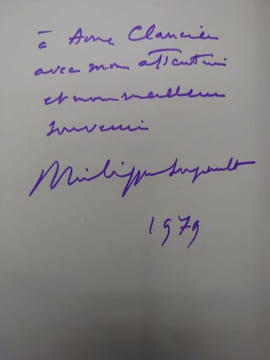 à Anne Clancier
avec mon attention
et mon meilleur
souvenir
Philippe
1979